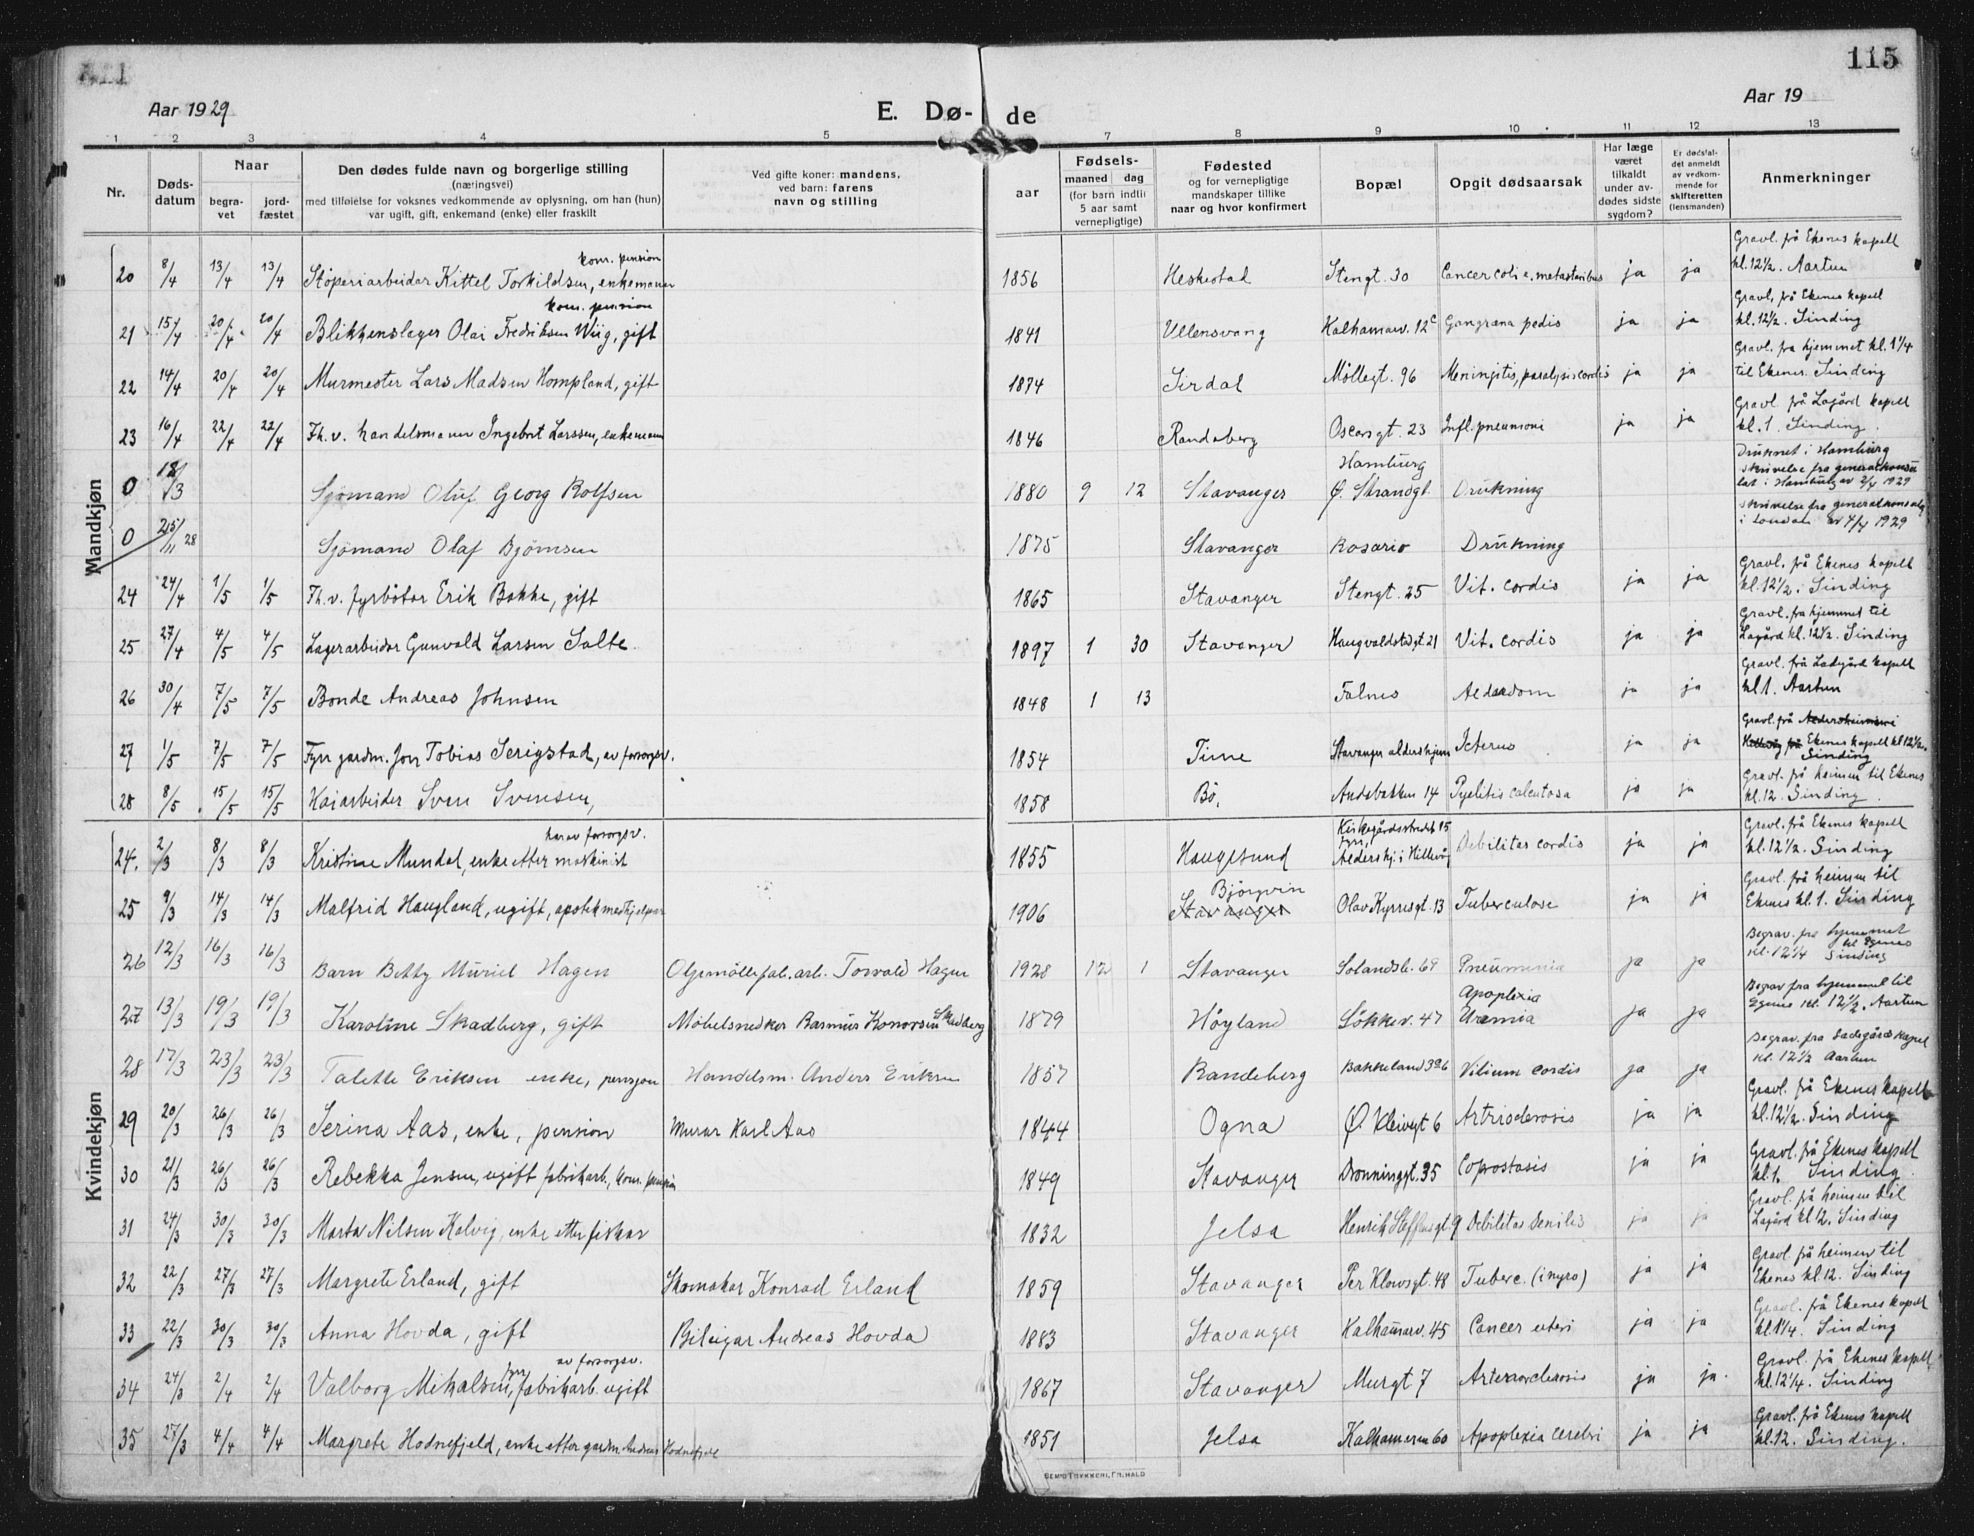 115
Aar 1929
E. Dø- de
Aar 19
1 2 3 4 5 7 8 9 10 11 12 13
Nr.
Døds-
datum
Naar
begra-
vet
jord-
fæstet
Den dødes fulde navn og borgerlige stilling
(næringsvei)
med tilføielse for voksnes vedkommende av oplysning, om han (hun)
var ugift, gift, enkemand (enke) eller fraskilt
Ved gifte koner: mandens,
ved barn: farens
navn og stilling
aar
Fødsels-
maaned dag
(for barn indtil
5 aar samt
vernepligtige)
Fødested
og for vernepligtige
mandskaper tillike
naar og hvor konfirmert
Bopæl
Opgit dødsaarsak
Har læge
været
tilkaldt
under av-
dødes sidste
sygdom?
Er dødsfal-
det anmeldt
av vedkom-
mende for
skifteretten
(lensmanden)
Anmerkninger
Mandkjøn
kom. pension
20 8/4 13/4 13/4 Støperiarbeider Kittel Torkildsen, enkemann 1856 Heskestad Stengt. 30 Cancer coli c. metastasibus ja ja Gravl. frå Ekenes kapell
kl. 12½. Aartun
kom. pension
21 15/4 20/4 20/4 Blikkenslager Olai Fredriksen Wiig, gift 1841 Ullensvang Kalhamarv. 12c Gangræna pedis ja ja Gravl. frå Ekenes kapell
kl. 12½. Sinding
22 14/4 20/4 20/4 Murmester Lars Madsen Hompland, gift 1874 Sirdal Møllegt. 96 Meningitis, paralysis cordis ja ja Gravl. fra hjemmet kl. 1¼
til Ekenes. Sinding
23 16/4 22/4 22/4 Fh. v. handelsmann Ingebret Larssen, enkemann 1846 Randaberg Oscarsgt. 23 Infl. pneumoni ja ja Gravl. frå Lagård kapell
kl. 1. Sinding
0 18/3 Sjømand Oluf Georg Rolfsen 1880 9 12 Stavanger Hamburg
Ø. Strandgt. Drukning Druknet i Hamburg
skrivelse fra generalkonsu
lat i Hamburg av 2/4 1929
0 25/11 28 Sjømand Olaf Bjørnsen 1875 Stavanger Rosario Drukning skrivelse fra generalkonsulg
i London av 4/4 1929
24 24/4 1/5 1/5 Fh. v. fyrbøtar Erik Bakke, gift 1865 Stavanger Stengt. 25 Vit. cordis ja ja Gravl. frå Ekenes kapell
kl. 12½. Sinding
25 27/4 4/5 4/5 Lagerarbeider Gunvald Larsen Salte. 1897 1 30 Stavanger Haugvaldstadgt 21 Vit. cordis ja ja Gravl. fra hjemmet til
Lagård kl. 12½. Sinding
26 30/4 7/5 7/5 Bonde Andreas Johnsen 1848 1 13 Falnes Alderdom ja ja Gravl. frå Ladgård kapell
kl 1. Aartun
27 1/5 7/5 7/5 Fyrr gardm. Jon Tobias Serigstad, av forsorgsv. 1854 Time Stavanger aldershjem Icterus ja ja Gravl. frå Aldersheimen i
Hillevåg på Ekenes kapell kl 12½.
Sinding
28 8/5 15/5 15/5 Kaiarbeider Sven Svensen, 1858 Bø. Andabakken 14 Pyelitis calculosa ja ja Gravl. frå heimen til Ekenes
kl. 12. Sinding.
Kvindekjøn
har av forsorgsv.
24. 2/3 8/3 8/3 Kristine Mundal, enke etter maskinist 1855 Haugesund Kirkegårdsstredet 15
Fyrr,
Aldershj. i Hillevåg Debilitas cordis ja ja Gravl. frå Ekenes kapell
kl. 12½. Sinding
25 9/3 14/3 14/3 Malfrid Haugland, ugift, apotekmedhjelper 1906 Bjørgvin
Stavanger Olav Kyrresgt. 13 Tuberculose ja ja Gravl. frå heimen til
Ekenes kl. 1. Sinding
26 12/3 16/3 16/3 Barn Betty Muriel Hagen Oljemøllefab. arb. Torvald Hagen 1928 12 1 Stavanger Solandsb. 69 Pneumonia ja ja Begrav. fra hjemmet
til Egenes
kl. 12¼ Sinding
27 13/3 19/3 19/3 Karoline Skadberg, gift Møbelsnedker Rasmus Konorsen Skadberg 1879 Høyland Løkkev. 47 Apoplexia
Uremia ja ja Begrav fra hjemmet til
Egenes kl. 12½. Aartun
28 17/3 23/3 23/3 Talette Eriksen enke, pensjon Handelsm. Anders Eriksen 1857 Randeberg Bakkeland 396 Vitium cordis ja ja Begrav. fra Ladegårds kapel
kl. 12½ Aartun
29 20/3 26/3 26/3 Serina Aas, enke, pension Murar Karl Aas 1844 Ogna Ø. Kleivegt 6 Artriosclerosis ja ja Gravl. frå Ekenes kapell
kl. 12½. Sinding
30 21/3 26/3 26/3 Rebekka Jensen, ugift fabrikarb., kom. pension 1849 Stavanger Dronninggt. 35 Copostasis ja ja Gravl. frå Ekenes kapell
kl. 1. Sinding.
31 24/3 30/3 30/3 Marta Nilsen Kalvig, enke etter fiskar 1832 Jelsa Henrik Steffensgt 9 Debilitas senilis ja ja Gravl. frå heimen til
Lagård kl 12. Sinding
32 22/3 27/3 27/3 Margrete Erland, gift Skomakar Konrad Erland 1859 Stavanger Per Klowsgt. 48 Tuberc. (i nyro) ja ja Gravl frå heimen til
Ekenes kl. 12. Sinding
33 22/3 30/3 30/3 Anna Hovda, gift Bileigar Andreas Hovda 1883 Stavanger Kalhamarv. 45 Cancer uteri ja ja Gravl. frå Ekenes kapell
kl 1¼. Sinding
av forsorgsv.
34 24/3 2/4 2/4 Valborg Mikalsen, fyrr fabrikarb. ugift 1867 Stavanger Murgt 7 Arteriosclerosis ja ja. Gravl. frå Ekenes kapell
kl. 12¼. Sinding
35 27/3 4/4 4/4 Margrete Hodnefjeld, enke etter gardm. Andreas Hodnefjeld 1851 Jelsa Kalhamarvn 60 Apoplexia cerebri ja ja Gravl. frå Ekenes kapell
kl. 12. Sinding.
SEM'S TRYKKERI, FR.HALD